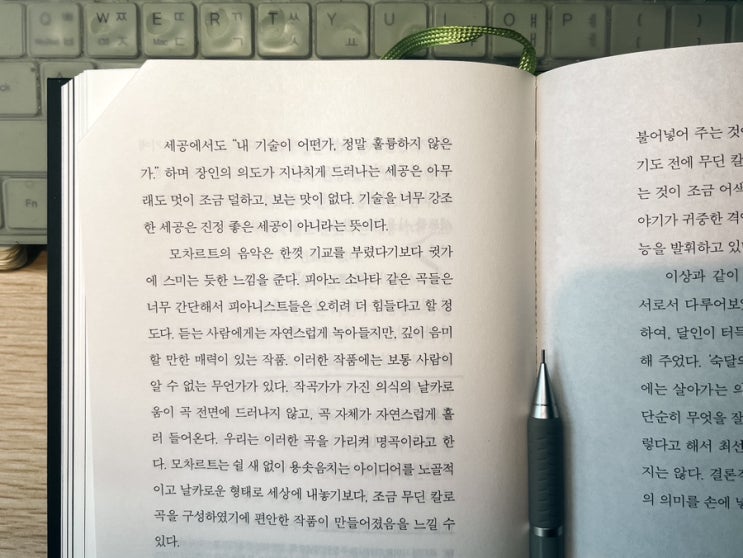 Q W E R T Y U I O P
ㅉ ㄸ ㄲ ㅆ ㅛ ㅒ
Fn
세공에서도 “내 기술이 어떤가, 정말 훌륭하지 않은
가.” 하며 장인의 의도가 지나치게 드러나는 세공은 아무
래도 멋이 조금 덜하고, 보는 맛이 없다. 기술을 너무 강조
한 세공은 진정 좋은 세공이 아니라는 뜻이다.
모차르트의 음악은 한껏 기교를 부렸다기보다 귓가
에 스미는 듯한 느낌을 준다. 피아노 소나타 같은 곡들은
너무 간단해서 피아니스트들은 오히려 더 힘들다고 할 정
도다. 듣는 사람에게는 자연스럽게 녹아들지만, 깊이 음미
할 만한 매력이 있는 작품. 이러한 작품에는 보통 사람이
알 수 없는 무언가가 있다. 작곡가가 가진 의식의 날카로
움이 곡 전면에 드러나지 않고, 곡 자체가 자연스럽게 흘
러 들어온다. 우리는 이러한 곡을 가리켜 명곡이라고 한
다. 모차르트는 쉴 새 없이 용솟음치는 아이디어를 노골적
이고 날카로운 형태로 세상에 내놓기보다, 조금 무딘 칼로
곡을 구성하였기에 편안한 작품이 만들어졌음을 느낄 수
있다.
불어넣어 주는 것이
기도 전에 무딘 칼
는 것이 조금 어색
야기가 귀중한 격언
능을 발휘하고 있
이상과 같이
서로서 다루어보
하여, 달인이 터득
해 주었다. ‘숙달
에는 살아가는 의
단순히 무엇을 잘
렇다고 해서 최선
지는 않다. 결론
의 의미를 손에 넣